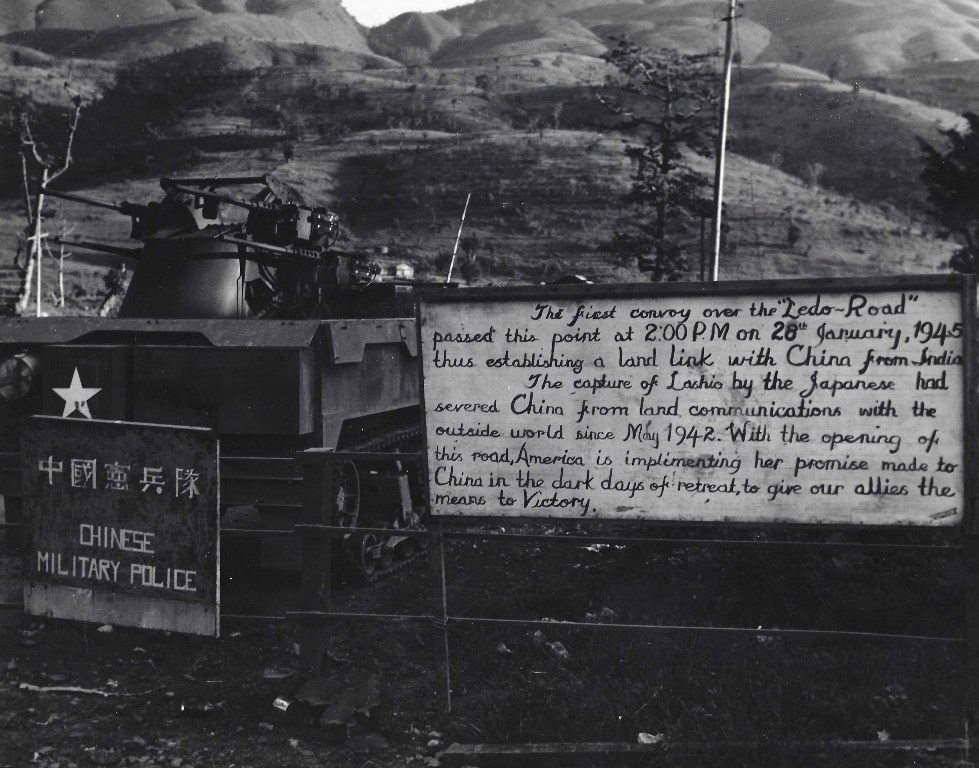 中國憲兵隊
CHINESE
MILITARY POLICE
The first convoy over the "Ledo-Road"
passed this point at 2:00 P.M on 28th January, 1945
thus establishing a land link with China from India
The capture of Lashio by the Japanese had
severed China from land communications with the
outside world since May 1942. With the opening of
this road, America is implimenting her promise made to
China in the dark days of retreat, to give our allies the
means to Victory.